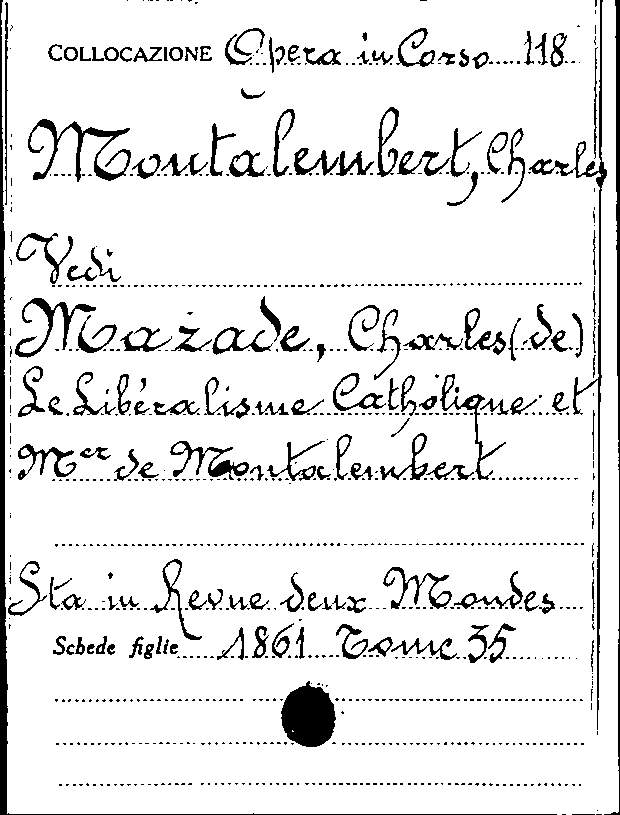 COLLOCAZIONE Opera in Corso 118
Montalembert, Charles
Vedi
Mazade, Charles (de)
Le Libéralisme Catholique et
Mer de Montalembert
Sta in Revue deux Mondes
Schede figlie 1861 Tome 35